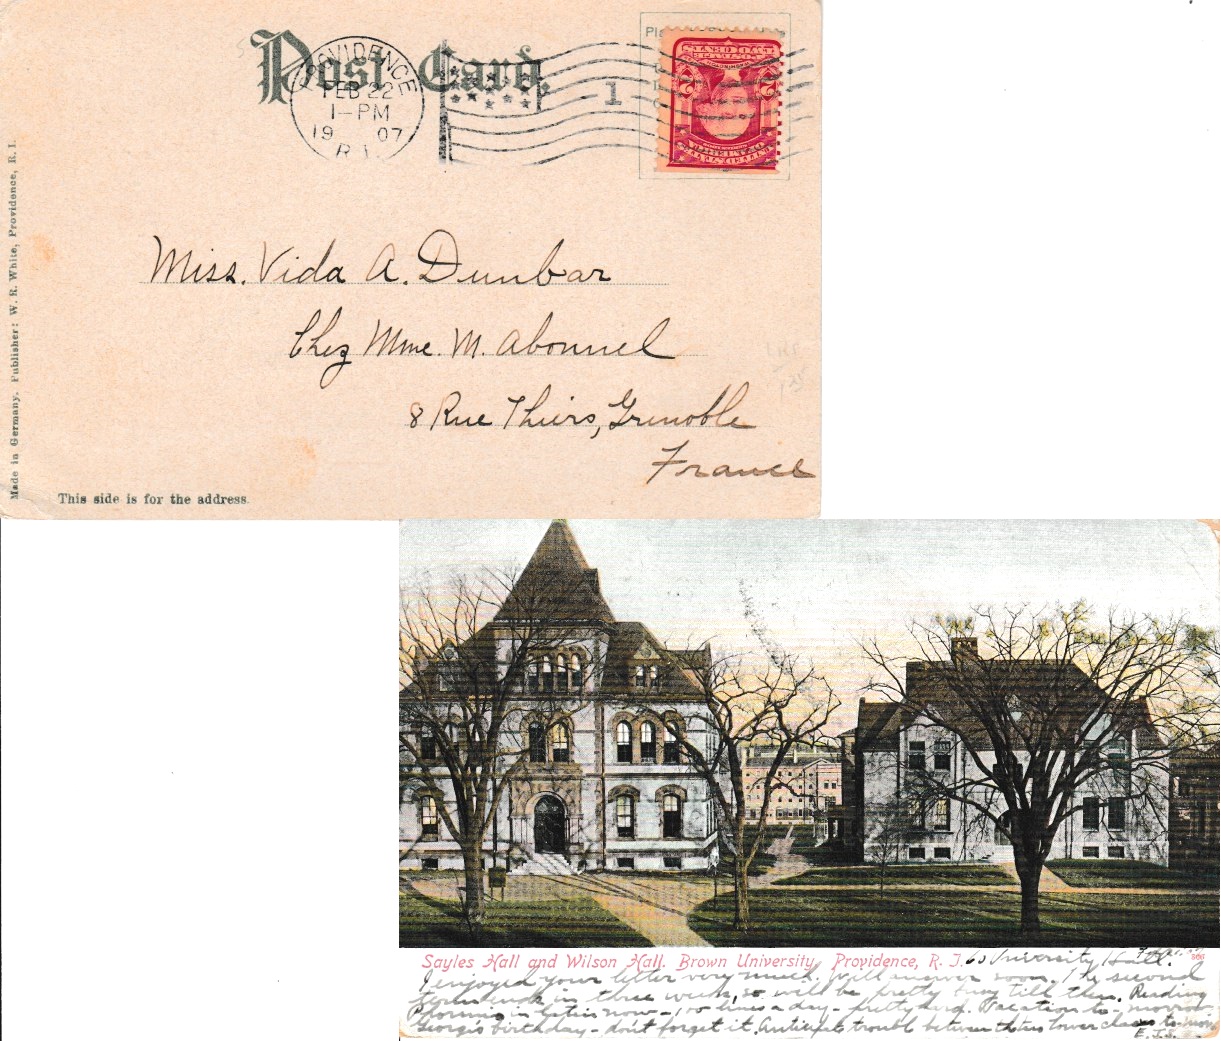 Post Card.
PROVIDENCE
FEB 22
1-PM
1907
R.I.
1
Miss. Vida A. Dunbar
Chez Mme. M. Abonnel
8 Rue Thiers, Grenoble
France
This side is for the address.
Made in Germany. Publisher: W. R. White, Providence, R. I.
Sayles Hall and Wilson Hall. Brown University, Providence, R. I.
University Hall.
I enjoyed your letter very much. Will answer soon. The second
in three weeks, so will be pretty busy till then. Reading
Phormio in Latin now - 100 lines a day - pretty hard. Vacation to-morrow
George's birthday - don't forget it. Anticipate trouble between the two lower classes
E. J. S.